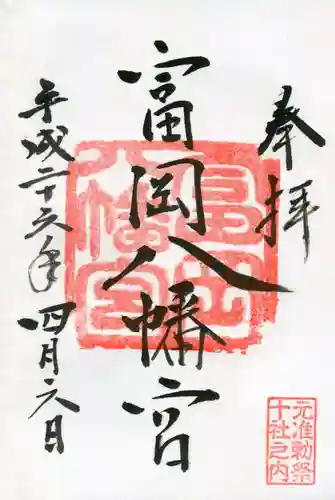 奉拝
富岡八幡宮
平成二十六年四月六日
富岡
八幡宮
元准勅祭
十社之内